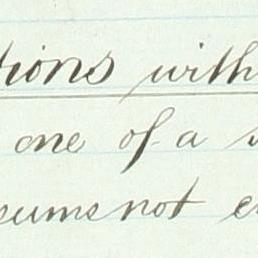 tions with
one of a
sums not e